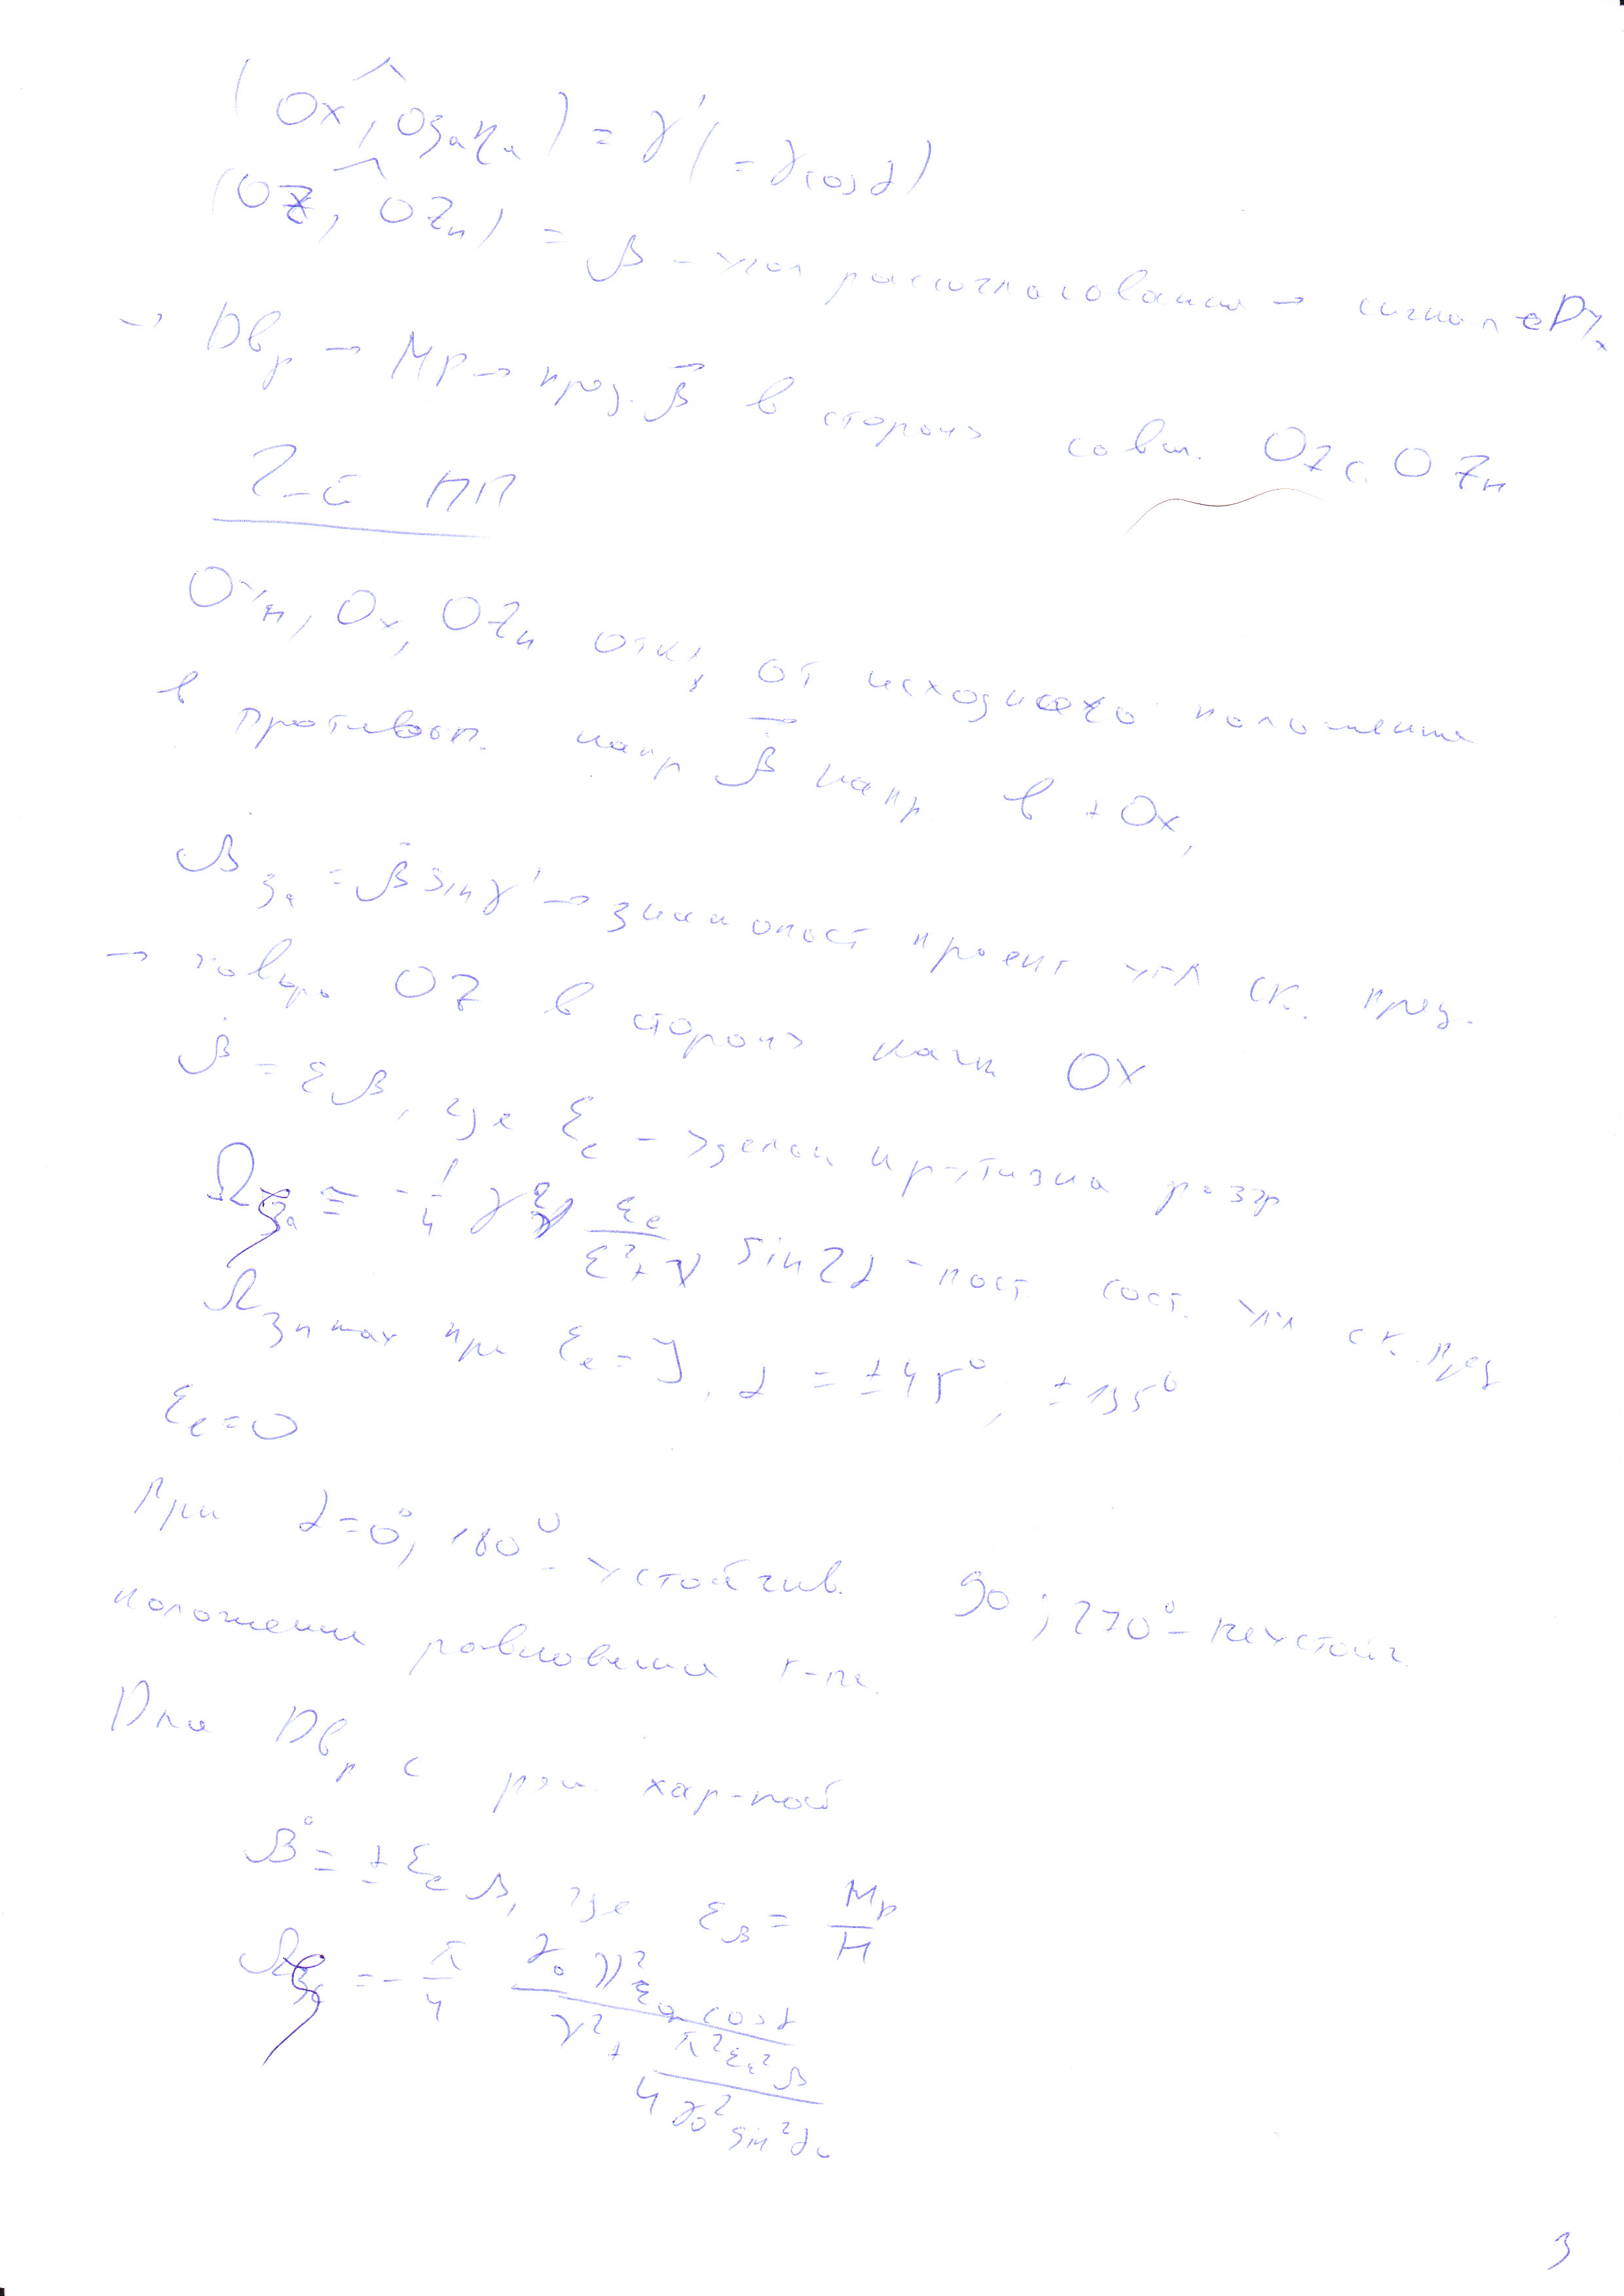 (Ox, Oξₐηₐ) = γ' (= γ cos α)
(OZ, OZₙ) = β – угол рассогласования → сигнал с ДУₓ
→ Двᵣ → Mр → прец. β в сторону совм. OZ с OZₙ
2-й ПП
OYₙ, Ox, OZₙ откл. от исходного положения
в противоп. напр β напр в + Ox,
β = β sin γ' → знакопост проекц угл ск. прец.
→ повор. OZ в сторону кач OX
β = εβ, где εₑ – удельн кр-утизна
Ω ≅ - 1/4 γ² εₑ / ε² + ν sin 2α – пост. сост. угл ск. прец
Ω max при εₑ = , α = ±45°, ±135°
εₑ = 0
При α = 0°, 180° – устойчив. 90; 270° – неустойч.
положени равновесия
Для Двᵣ с рел. хар-кой
β° = ± εₑ β, где εᵦ = Mр / H
Ω = - π/4 γ₀ ν² ε cos α / ν² + π² ε² β / 4 γ₀² sin² α
3